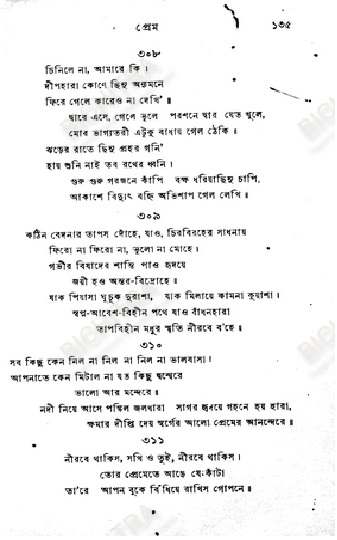 প্রেম ১৩৫
৩০৮
চিনিলে না, আমারে কি ।
দীপহারা কোণে ছিনু অন্যমনে
ফিরে গেলে কারেও না দেখি' ॥
দ্বারে এসে, গেলে ভুলে পরশনে দ্বার যেত খুলে,
মোর ভাগ্যতরী এটুকু বাধায় গেল ঠেকি ।
ঝড়ের রাতে ছিনু প্রহর গনি'
হায় শুনি নাই তব রথের ধ্বনি ।
গুরু গুরু গরজনে কাঁপি বক্ষ ধরিয়াছিনু চাপি,
আকাশে বিদ্যুৎ বহ্নি অভিশাপ গেল লেখি ।
৩০৯
কঠিন বেদনার তাপস দোঁহে, যাও, চিরবিরহের সাধনায়
ফিরো না ফিরো না, ভুলো না মোহে ।
গভীর বিষাদের শান্তি পাও হৃদয়ে
জয়ী হও অন্তর-বিদ্রোহে ।
যাক পিয়াসা ঘুচুক দুরাশা, যাক মিলায়ে কামনা কুয়াশা ।
স্বপ্ন-আবেশ-বিহীন পথে যাও বাঁধনহারা
তাপবিহীন মধুর স্মৃতি নীরবে ব'হে ।
৩১০
সব কিছু কেন নিল না নিল না নিল না ভালবাসা ।
আপনাতে কেন মিটাল না যত কিছু দ্বন্দ্বেরে
ভালো আর মন্দেরে ।
নদী নিয়ে আসে পঙ্কিল জলধারা সাগর হৃদয়ে গহনে হয় হারা,
ক্ষমার দীপ্তি দেয় স্বর্গের আলো প্রেমের আনন্দেরে ।
৩১১
নীরবে থাকিস, সখি ও তুই, নীরবে থাকিস ।
তোর প্রেমেতে আছে যে-কাঁটা
তা'রে আপন বুকে বিঁধিয়ে রাখিস গোপনে ।